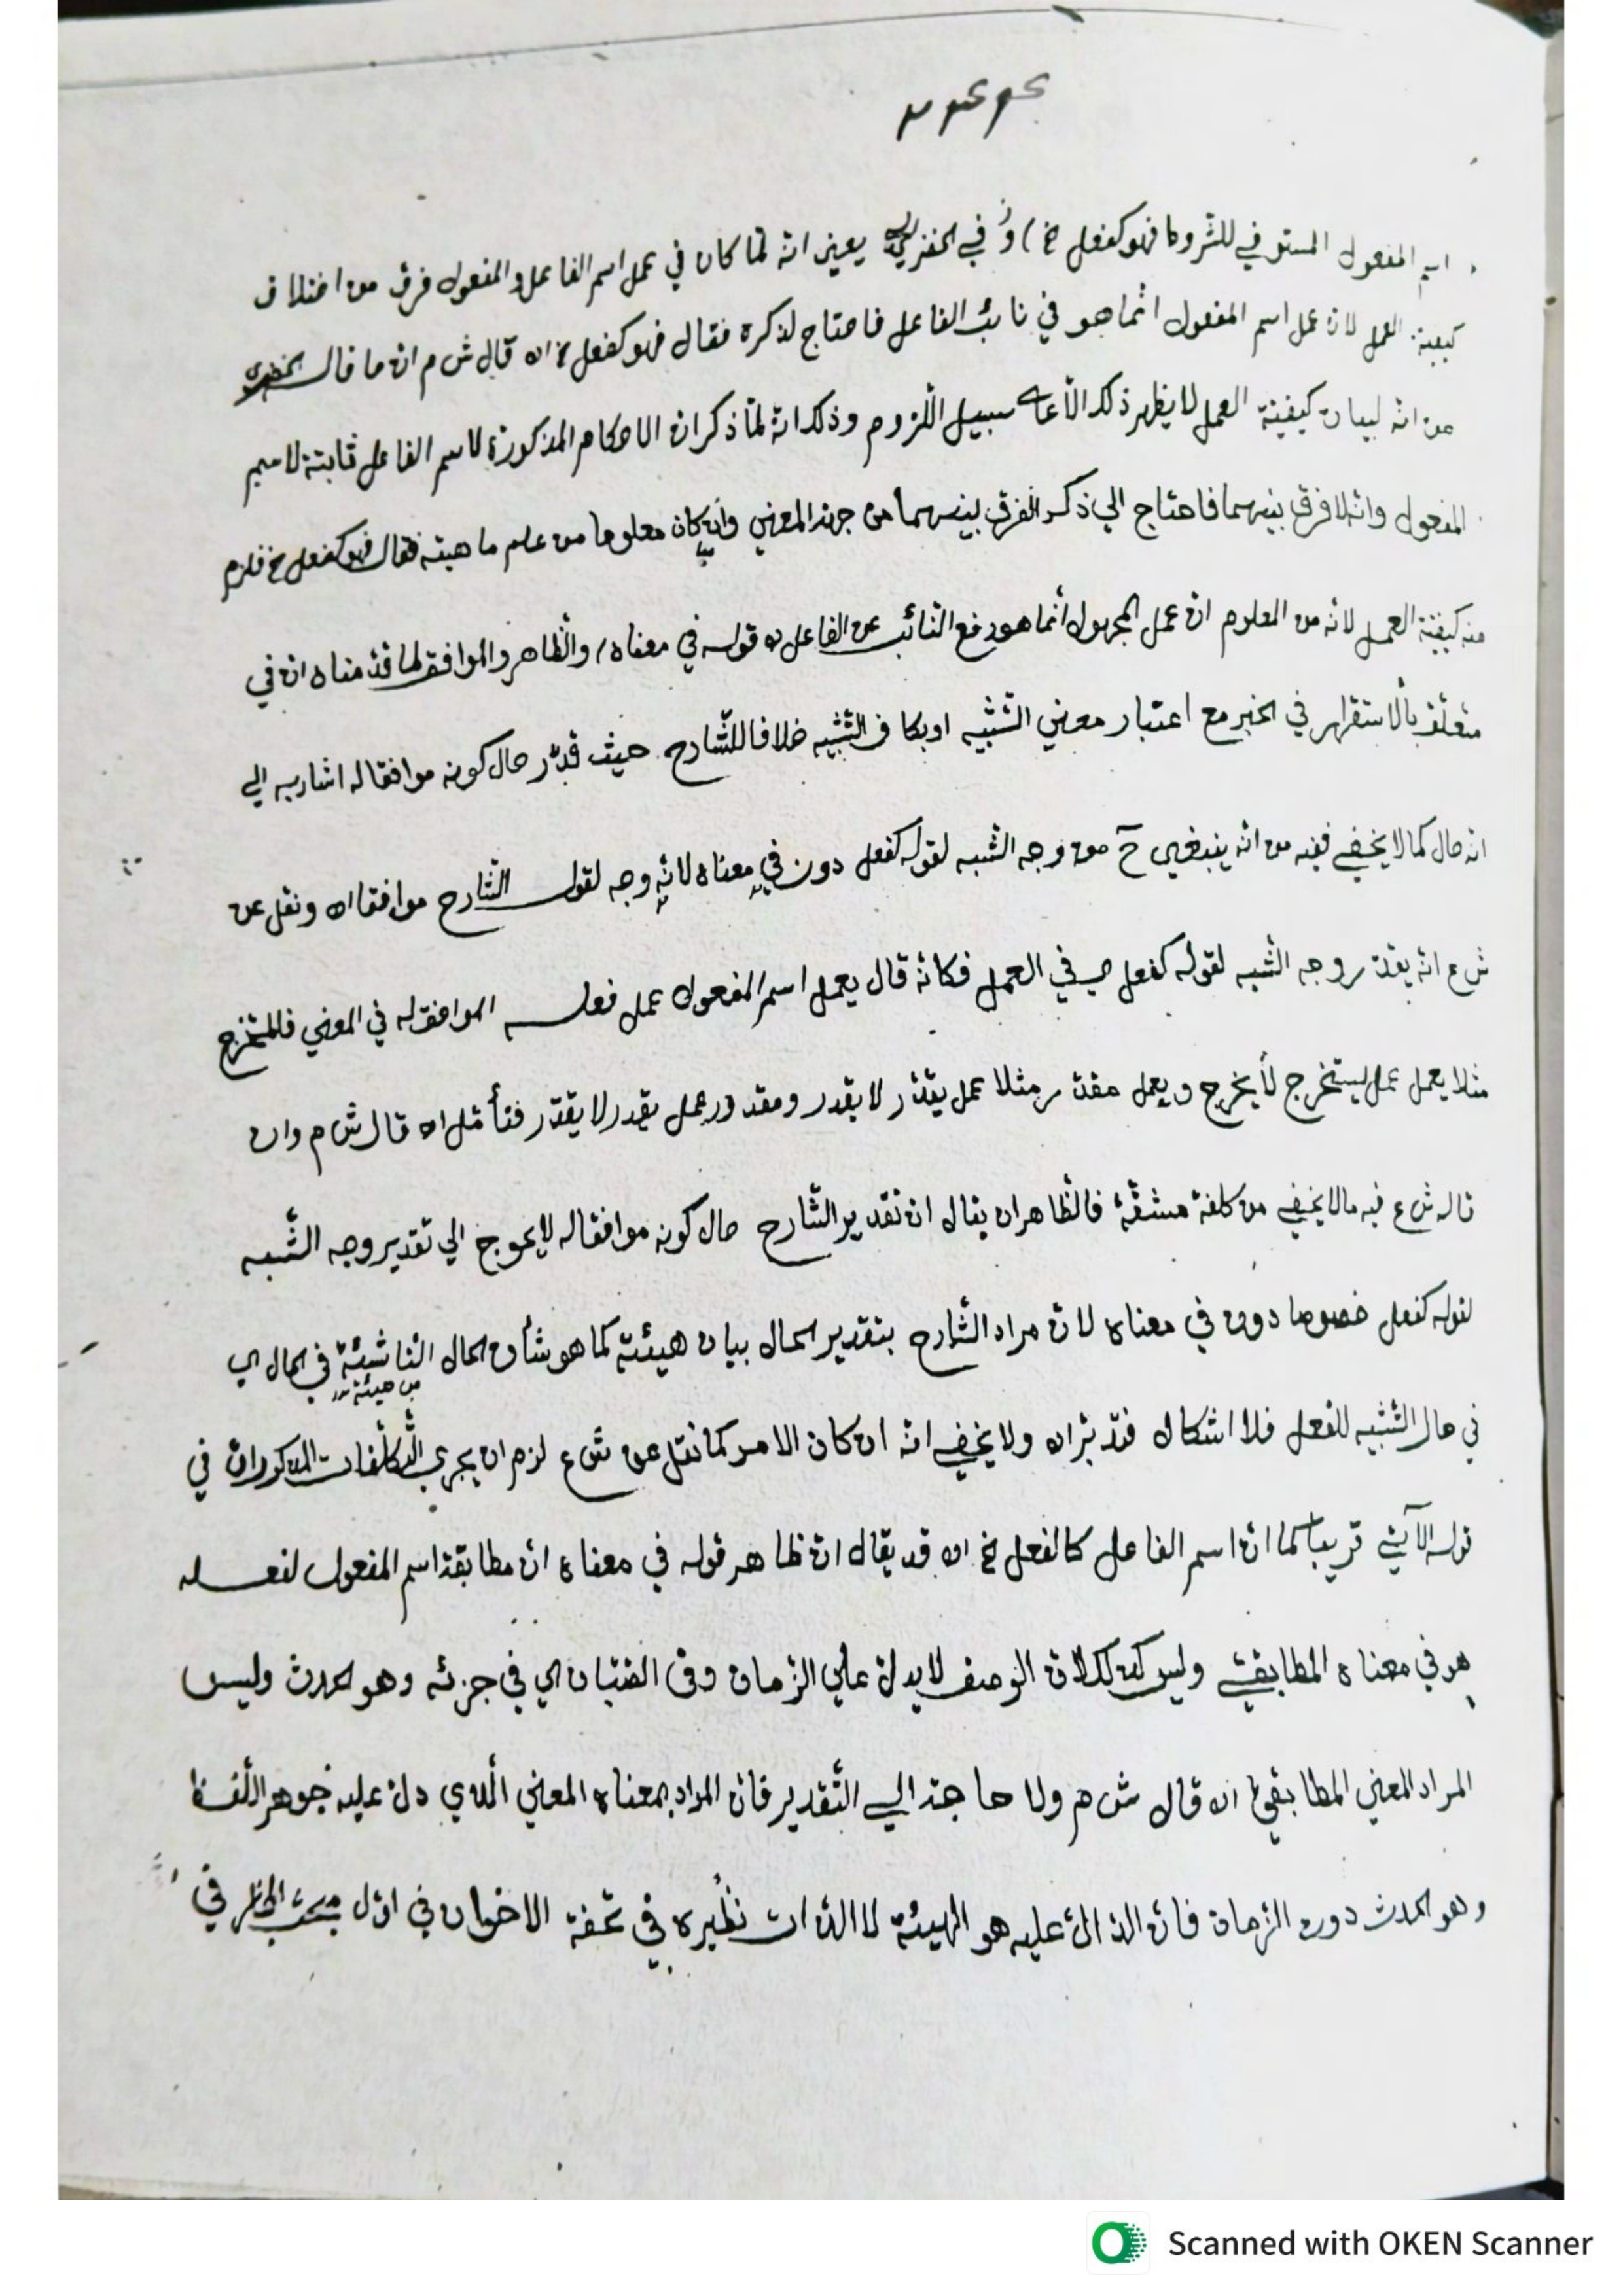 اسم المفعول المستوفي للشروط فهو كفعل الخ) و في الخضري يعني انه لما كان في عمل اسم الفاعل والمفعول فرق من اختلاف
كيفية العمل لان عمل اسم المفعول انما هو في نائب الفاعل فاحتاج لذكره فقال فهو كفعل الخ اه قال ش م ان ما قاله الخضري
من انه لبيان كيفية العمل لا يظهر ذلك الا على سبيل اللزوم وذلك انه لما ذكر ان الاحكام المذكورة لاسم الفاعل ثابتة لاسم
المفعول وانه لا فرق بينهما فاحتاج الي ذكر الفرق بينهما من جهة المعني وان كان معلوما من علم ماهيته فقال فهو كفعل الخ فلزم
منه كيفية العمل لانه من المعلوم ان عمل المجهول انما هو رفع النائب عن الفاعل اه قوله في معناه) والظاهر والموافق لما قدمناه ان في
متعلق بالاستقرار في الخبر مع اعتبار معني التشبيه او بكاف التشبيه خلافا للشارح حيث قدر حال كونه موافقا له اشار به الي
انه حال كما لا يخفي ففيه من انه ينبغي ح من وجه الشبه لقوله كفعل دون في معناه لانه وجه لقول الشارح موافقا اه ونقل عن
ش ع انه يقدر وجه الشبه لقوله كفعل اي في العمل فكانه قال يعمل اسم المفعول عمل فعله الموافق له في المعني فالمستخرج
مثلا يعمل عمل يستخرج لا يخرج ويعمل مقدر مثلا عمل يقدر لا يقدر ومقدور عمل يقدر لا يقدر فتأمل اه قال ش م وان
قاله ش ع فيه ما لا يخفي من كلفة مشقة فالظاهر ان يقال ان تقدير الشارح حال كونه موافقا له لا يحوج الي تقدير وجه الشبه
لقوله كفعل خصوصا دون في معناه لان مراد الشارح بتقدير الحال بيان هيئته كما هو شأن الحال الناشئة في الحال اي
من هيئته
في حال التشبيه للفعل فلا اشكال فتدبر اه ولا يخفي انه ان كان الامر كما نقل عن ش ع لزم ان يجري التكلفات المذكوران في
قوله الآتي قريبا كما ان اسم الفاعل كالفعل الخ اه قد يقال ان ظاهر قوله في معناه ان مطابقة اسم المفعول لفعله
هو في معناه المطابقي وليس كذلك لان الوصف لا يدل علي الزمان وفي الصبان اي في جزئه وهو الحدث وليس
المراد المعني المطابقي اه قال ش م ولا حاجة الي التقدير فان المراد بمعناه المعني الذي دل عليه جوهر اللفظ
وهو الحدث دون الزمان فان الدال عليه هو الهيئة لا الذات نظيره في تحفة الاخوان في اول في